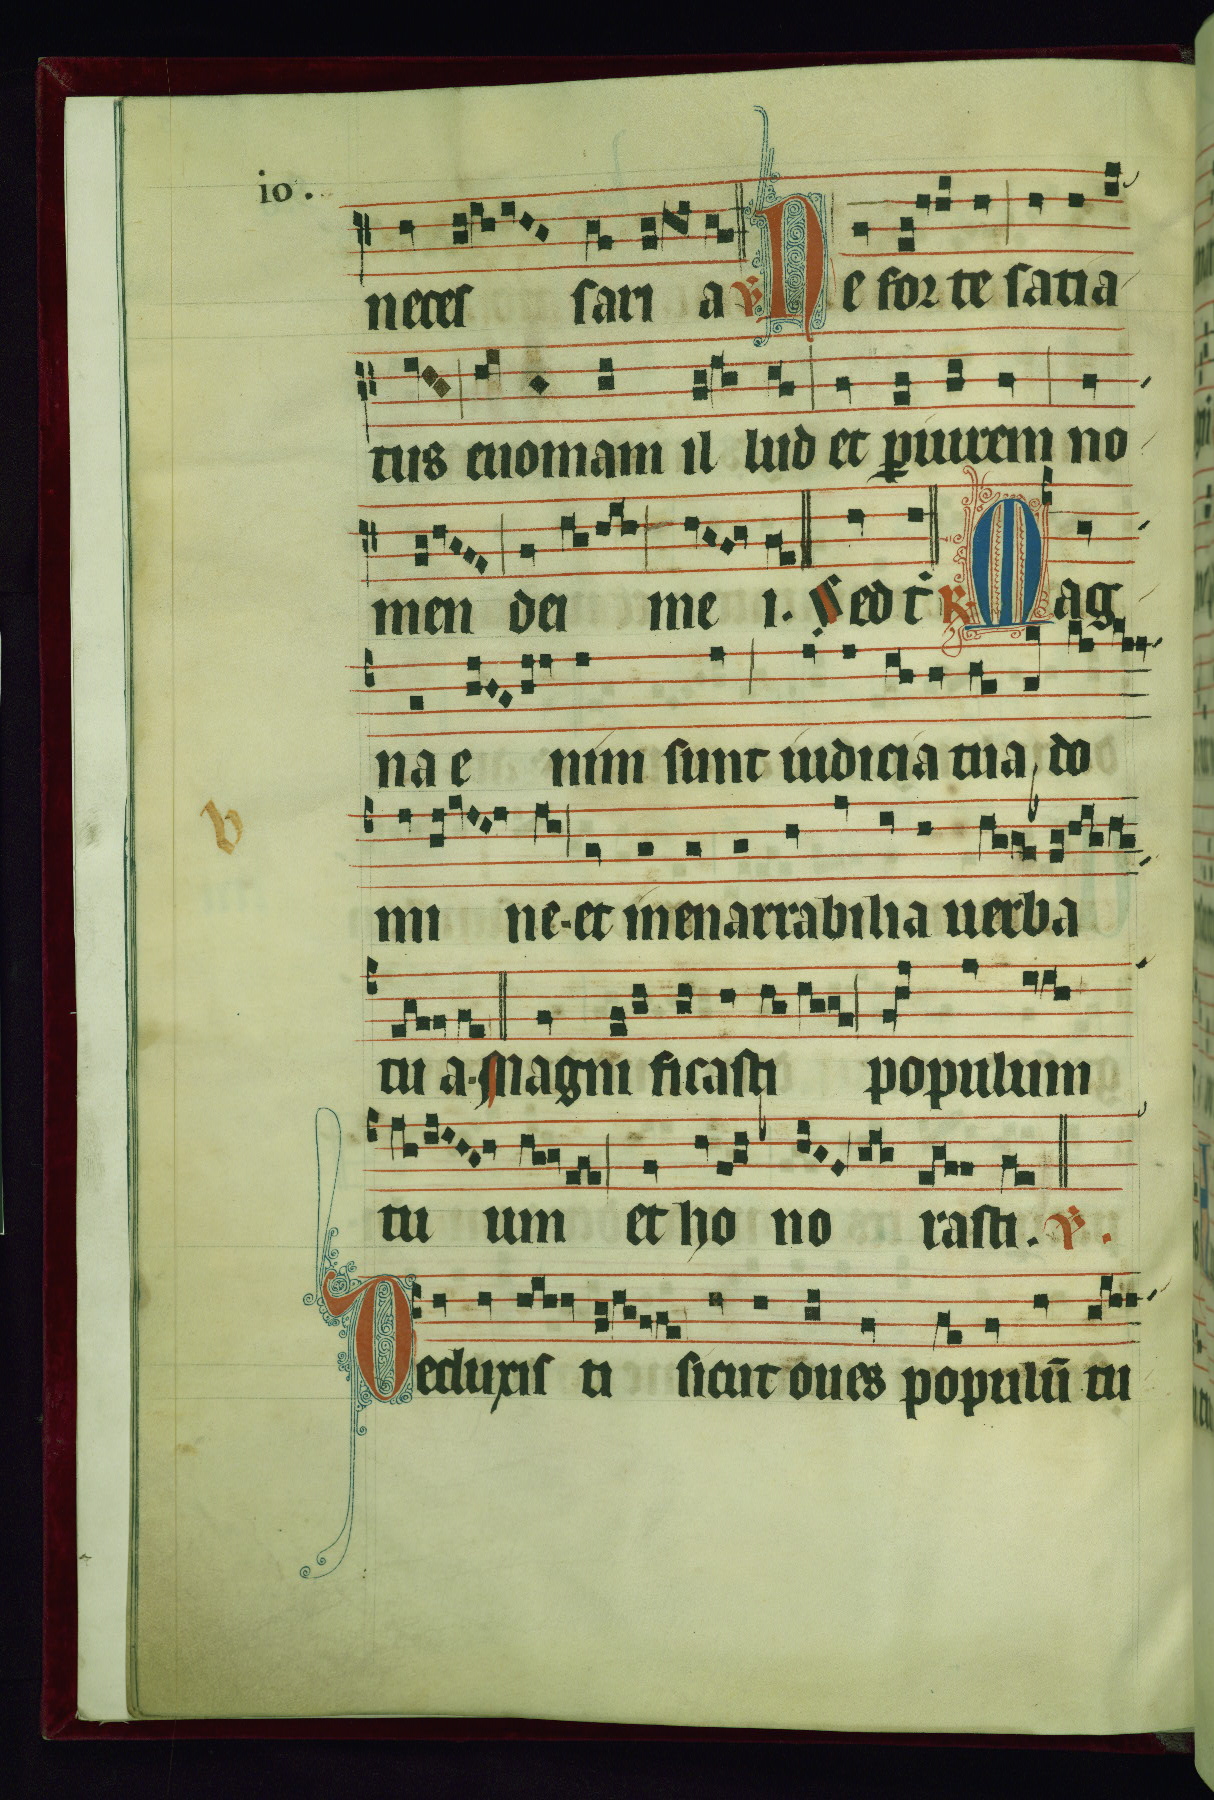 io.
neces sari a ℣ Ne for te satia
tus euomam il lud et ꝑiurem no
men dei me i. Sed t̄ ℟ Mag
na e nim sunt iudicia tua, do
b
mi ne·et inenarrabilia uerba
tu a·Magni ficasti populum
tu um et ho no rasti. ℣.
Deduxis ti sicut oues populū tu